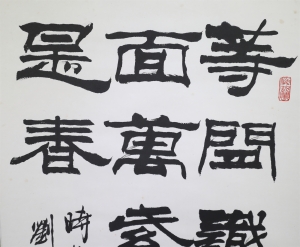 等閒識
面萬紫
是春
時
劉